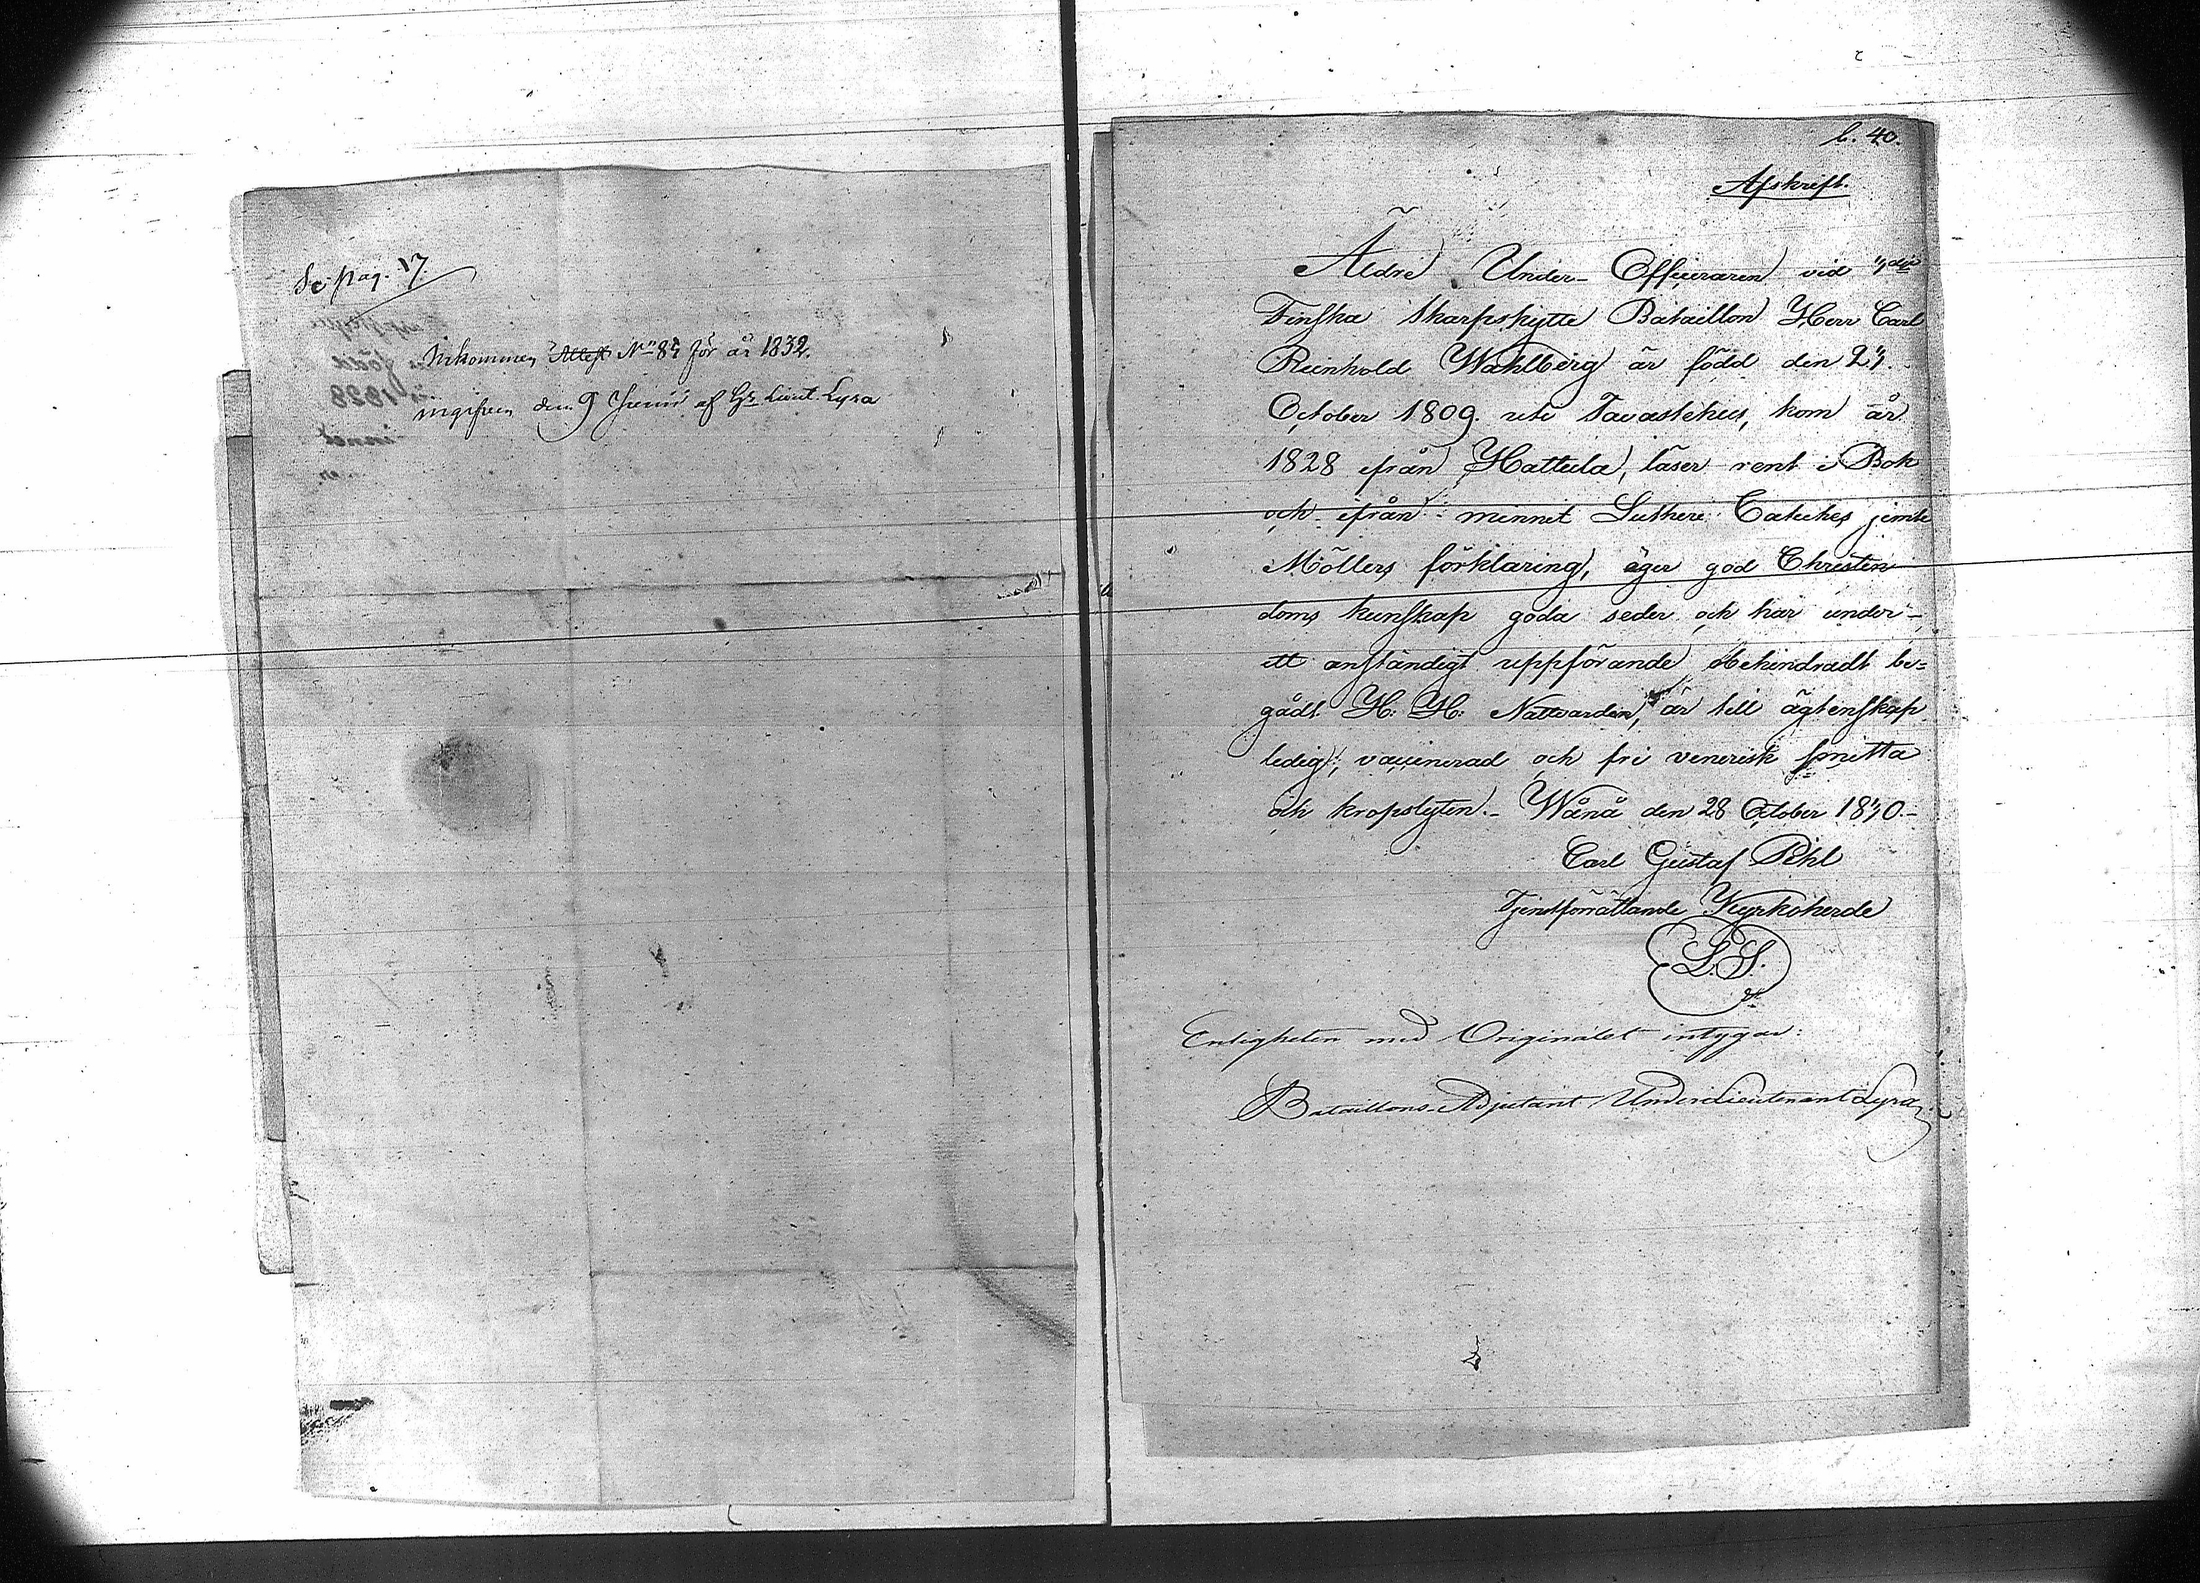 Se pag. 17.
Inkommen Attest No 84 för år 1832.
ingifven den 9 Junii af Hr Lieut. Lyra
b. 40.
Afskrift.
Äldre Under-Officeraren vid
Finska Skarpskytte Bataillon Herr Carl
Reinhold Wahlberg är född den 24
October 1809 uti Tavastehus, kom år
1828 ifrån Hattula, läser rent i Bok
och ifrån minnet Lutheri Cateches jemte
Möllers förklaring, äger god Christen
doms kunskap goda seder och har under
ett anständigt uppförande obehindradt be-
gådt H: H: Nattvarden, är till ägtenskap
ledig, vaccinerad och fri venerisk smitta
och kropslyten.- Wånå den 28 October 1840.-
Carl Gustaf Pihl
Tjenstförrättande Kyrkoherde
L.S.
Enligheten med Originalet intygar:
Bataillons-Adjutant Underlieutenant Lyra